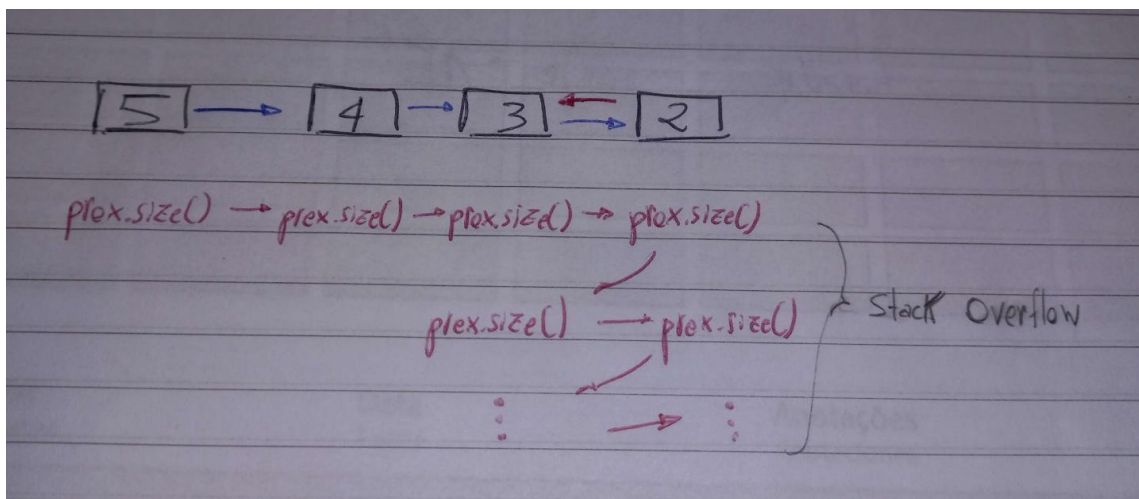 5 → 4 → 3 ⇄ 2
prox.size() → prox.size() → prox.size() → prox.size()
prox.size() → prox.size()
Stack Overflow
⋮ → ⋮